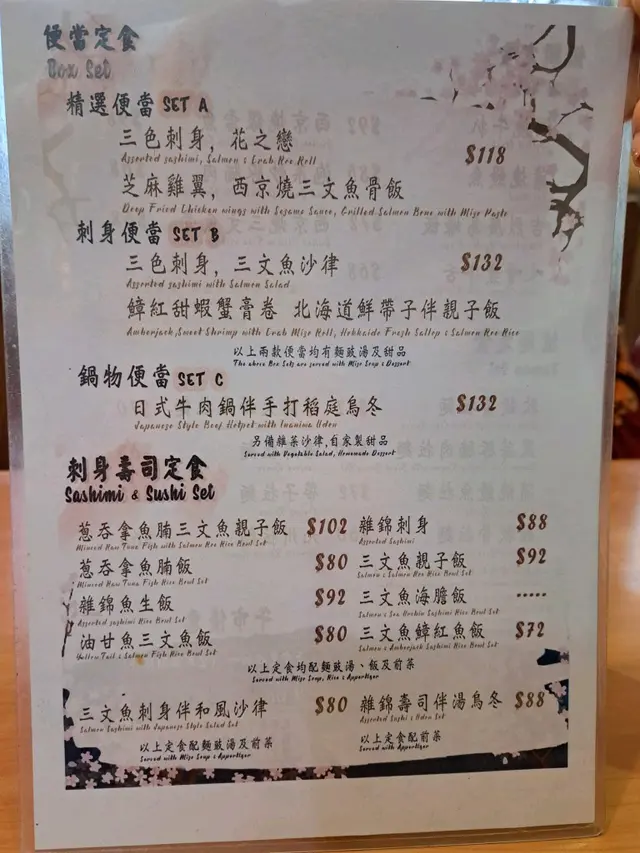 便當定食
Box Set
精選便當 SET A
三色刺身, 花之戀
Assorted sashimi, Salmon & Crab Roe Roll
$118
芝麻雞翼, 西京燒三文魚骨飯
Deep Fried Chicken wings with Sesame Sauce, Grilled Salmon Bone with Miso Paste
刺身便當 SET B
三色刺身, 三文魚沙律 $132
Assorted sashimi with Salmon Salad
鱆紅甜蝦蟹膏卷 北海道鮮帶子伴親子飯
Amberjack,Sweet Shrimp with Crab Miso Roll, Hokkaido Fresh Sallop & Salmon Roe Rice
以上兩款便當均有麵豉湯及甜品
The above Box Sets are served with Miso Soup & Dessert
鍋物便當 SET C
日式牛肉鍋伴手打稻庭烏冬 $132
Japanese Style Beef Hotpot with Inaniwa Udon
另備雜菜沙律,自家製甜品
Served with Vegetable Salad, Homemade Dessert
刺身壽司定食
Sashimi & Sushi Set
蔥吞拿魚腩三文魚親子飯 $102 雜錦刺身 $88
Minced Raw Tuna Fish with Salmon Roe Rice Bowl Set Assorted Sashimi
蔥吞拿魚腩飯 $80 三文魚親子飯 $92
Minced Raw Tuna Fish Rice Bowl Set Salmon & Salmon Roe Rice Bowl Set
雜錦魚生飯 $92 三文魚海膽飯 .....
Assorted sashimi Rice Bowl Set Salmon & Sea Urchin Sashimi Rice Bowl Set
油甘魚三文魚飯 $80 三文魚鱆紅魚飯 $72
Yellow Tail & Salmon Fish Rice Bowl Set Salmon & Amberjack Sashimi Rice Bowl Set
以上定食均配麵豉湯、飯及前菜
Served with Miso Soup, Rice & Appertizer
三文魚刺身伴和風沙律 $80 雜錦壽司伴湯烏冬 $88
Salmon Sashimi with Japanese Style Salad Set Assorted Sushi & Udon Set
以上定食配麵豉湯及前菜 以上定食配前菜
Served with Miso Soup & Appertizer Served with Appertizer